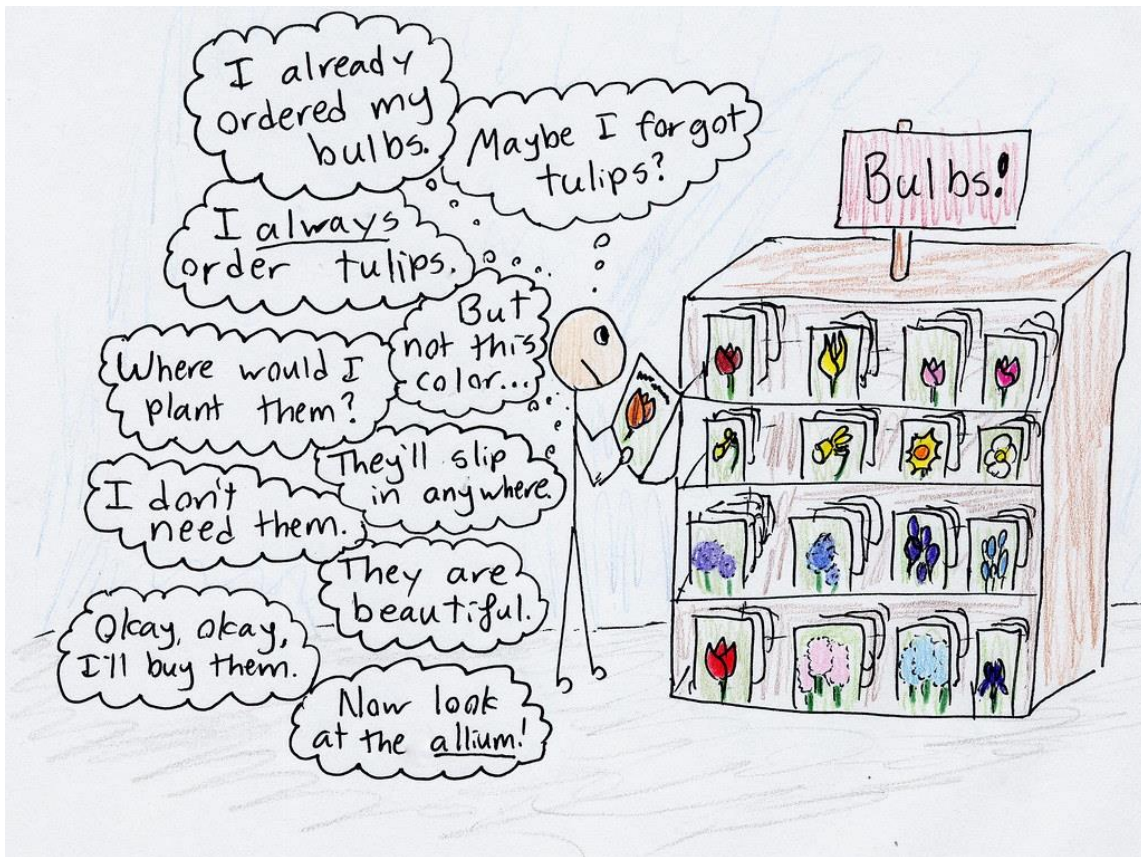 I already
ordered my
bulbs.
Maybe I forgot
tulips?
I always
order tulips.
But
not this
color...
Where would I
plant them?
They'll slip
in anywhere.
I don't
need them.
They are
beautiful.
Okay, okay,
I'll buy them.
Now look
at the allium!
Bulbs!